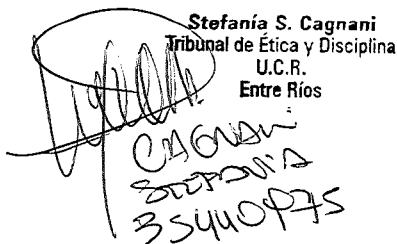 Stefanía S. Cagnani
Tribunal de Ética y Disciplina
U.C.R.
Entre Ríos
CAGNANI
STEFANIA